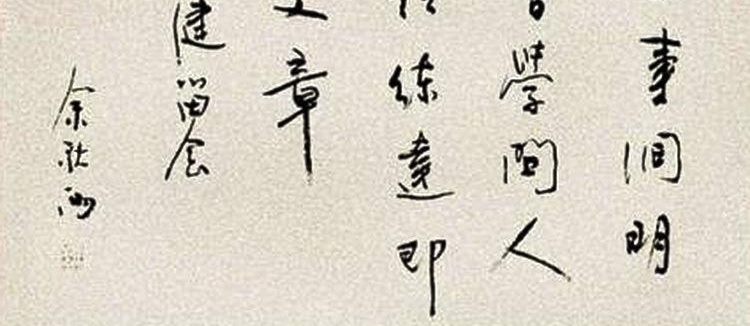 事洞明
學問人
練達即
文章
健留念
余秋雨